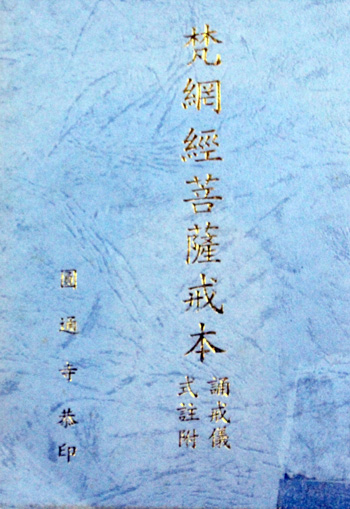 梵網經菩薩戒本
誦戒儀
式註附
圓通寺恭印